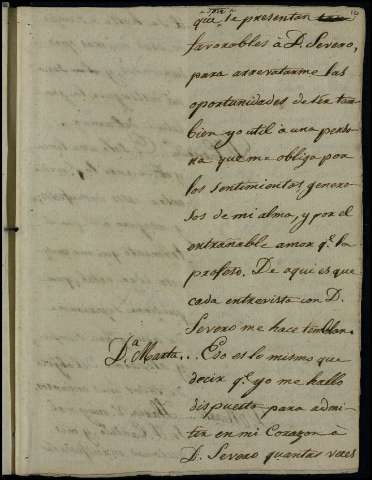 10
que se presentan
favorables à D. Severo,
para arrevatarme las
oportunidades de ser tam-
bien yo util à una perso-
na que me obliga por
los sentimientos genero-
sos de mi alma, y por el
entrañable amor q.e la
profeso. De aqui es que
cada entrevista con D.
Severo me hace temblar.
D.a Marta... Eso es lo mismo que
decir q.e yo me hallo
dispuesta para admi-
tir en mi Corazon à
D. Severo quantas veces